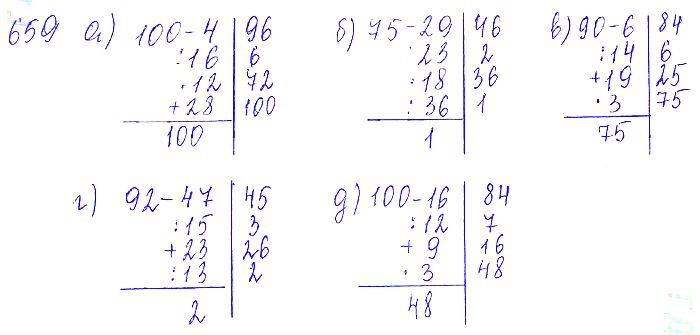 659 а) 100 - 4 | 96 б) 75 - 29 | 46 в) 90 - 6 | 84
: 16 | 6 23 | 2 : 14 | 6
· 12 | 72 : 18 | 36 + 19 | 25
+ 28 | 100 : 36 | 1 · 3 | 75
100 1 75
г) 92 - 47 | 45 д) 100 - 16 | 84
: 15 | 3 : 12 | 7
+ 23 | 26 + 9 | 16
: 13 | 2 · 3 | 48
2 48